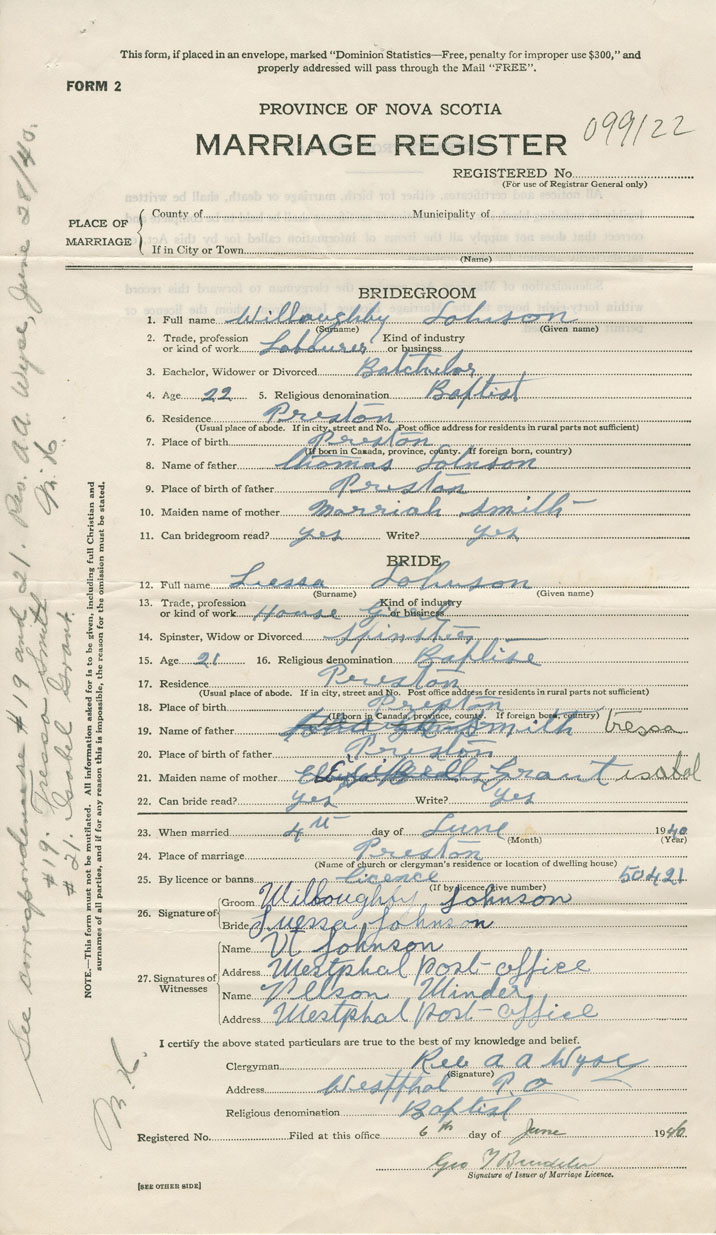 This form, if placed in an envelope, marked "Dominion Statistics—Free, penalty for improper use $300," and
properly addressed will pass through the Mail "FREE".
FORM 2
PROVINCE OF NOVA SCOTIA
MARRIAGE REGISTER
099122
REGISTERED No.
(For use of Registrar General only)
PLACE OF MARRIAGE
County of Municipality of
If in City or Town
(Name)
BRIDEGROOM
1. Full name Willoughby Johnson
(Surname) (Given name)
2. Trade, profession or kind of work Labourer Kind of industry or business
3. Bachelor, Widower or Divorced Batchelor
4. Age 22 5. Religious denomination Baptist
6. Residence Preston
(Usual place of abode. If in city, street and No. Post office address for residents in rural parts not sufficient)
7. Place of birth Preston
(If born in Canada, province, county. If foreign born, country)
8. Name of father Thomas Johnson
9. Place of birth of father Preston
10. Maiden name of mother Marriah Smith
11. Can bridegroom read? yes Write? yes
BRIDE
12. Full name Luessa Johnson
(Surname) (Given name)
13. Trade, profession or kind of work House Kind of industry or business
14. Spinster, Widow or Divorced Spinster
15. Age 21 16. Religious denomination Baptise
17. Residence Preston
(Usual place of abode. If in city, street and No. Post office address for residents in rural parts not sufficient)
18. Place of birth Preston
(If born in Canada, province, county. If foreign born, country)
19. Name of father Smith tressa
20. Place of birth of father Preston
21. Maiden name of mother Grant isabel
22. Can bride read? yes Write? yes
23. When married 4th day of June 1940
(Month) (Year)
24. Place of marriage Preston
(Name of church or clergyman's residence or location of dwelling house)
25. By licence or banns licence 50421
(If by licence, give number)
26. Signature of
Groom Willoughby Johnson
Bride Luessa Johnson
27. Signatures of Witnesses
Name Vt Johnson
Address Westphal post-office
Name Vellson Minder
Address Westphal post-office
I certify the above stated particulars are true to the best of my knowledge and belief.
Clergyman Rev a a Wyse
(Signature)
Address Westphal P.O
Religious denomination Baptist
Registered No. Filed at this office 6th day of June 1940
Geo
Signature of Issuer of Marriage Licence.
[SEE OTHER SIDE]
NOTE.—This form must not be mutilated. All information asked for is to be given, including full Christian and
surnames of all parties, and if for any reason this is impossible, the reason for the omission must be stated.
See correspondence re #19 and 21. Rev. A.A. Wyse, June 28/40.
#19. Tressa Smith M.K.
#21. Isabel Grant.
M.K.